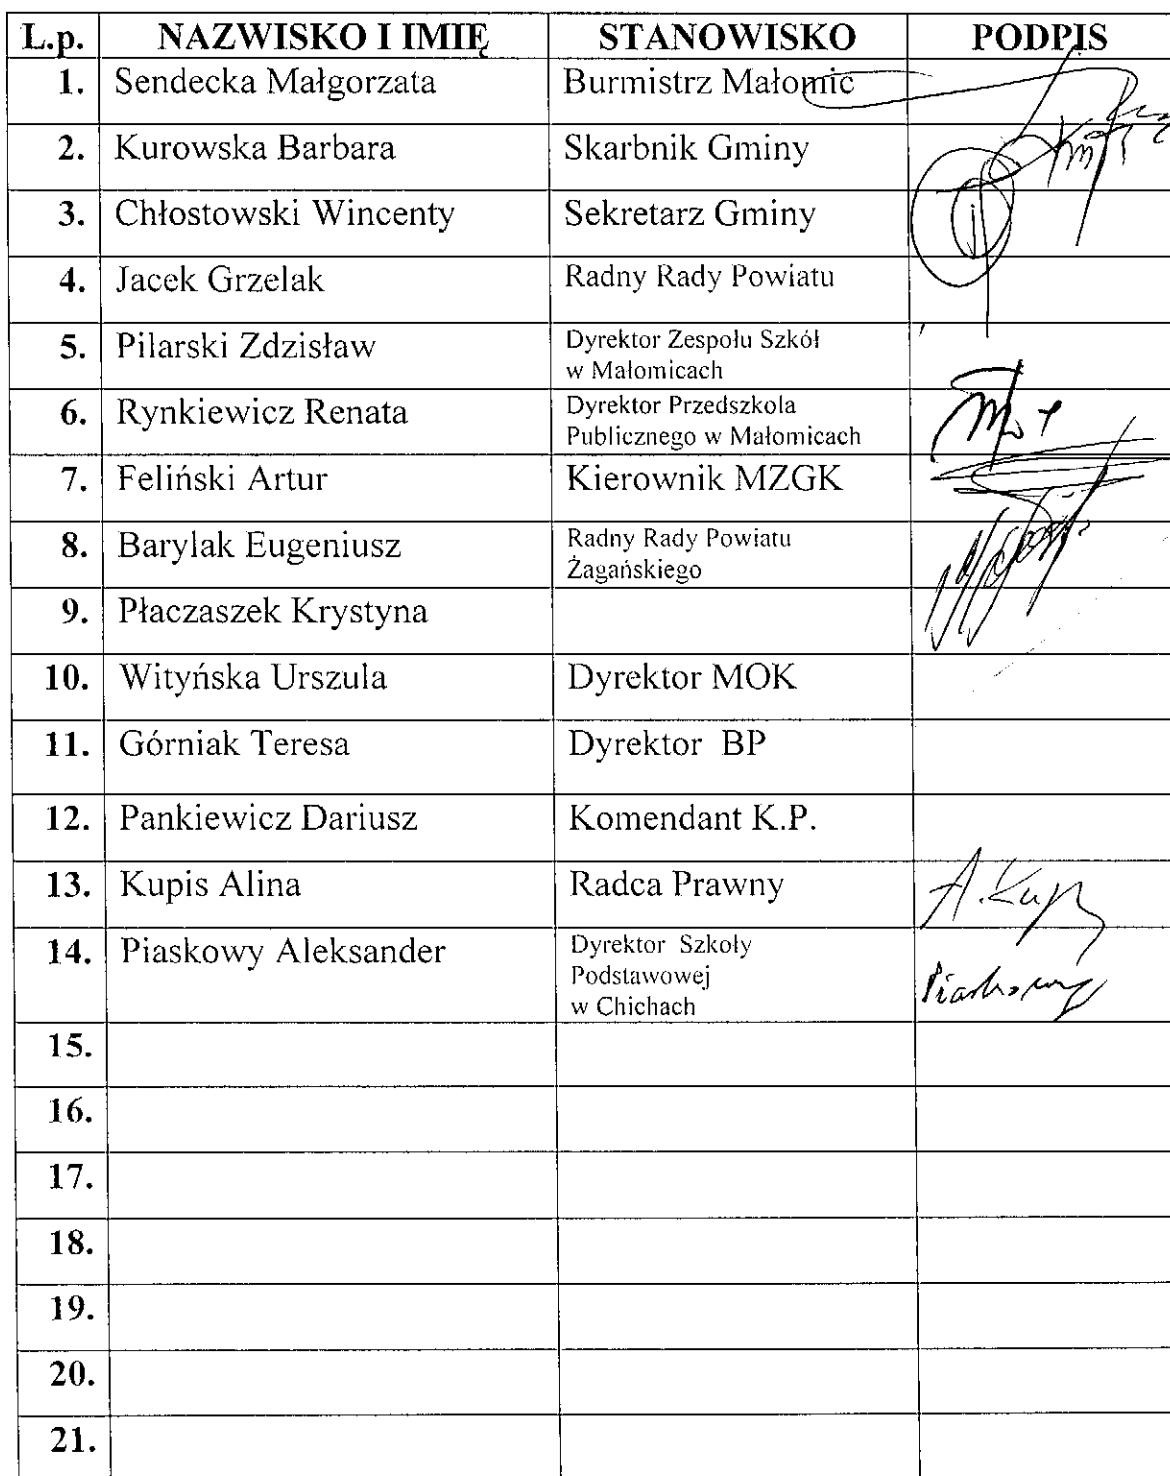 L.p. NAZWISKO I IMIĘ STANOWISKO PODPIS
1. Sendecka Małgorzata Burmistrz Małomic
2. Kurowska Barbara Skarbnik Gminy
3. Chłostowski Wincenty Sekretarz Gminy
4. Jacek Grzelak Radny Rady Powiatu
5. Pilarski Zdzisław Dyrektor Zespołu Szkół
w Małomicach
6. Rynkiewicz Renata Dyrektor Przedszkola
Publicznego w Małomicach
7. Feliński Artur Kierownik MZGK
8. Barylak Eugeniusz Radny Rady Powiatu
Żagańskiego
9. Płaczaszek Krystyna
10. Wityńska Urszula Dyrektor MOK
11. Górniak Teresa Dyrektor BP
12. Pankiewicz Dariusz Komendant K.P.
13. Kupis Alina Radca Prawny
14. Piaskowy Aleksander Dyrektor Szkoły
Podstawowej
w Chichach
15.
16.
17.
18.
19.
20.
21.